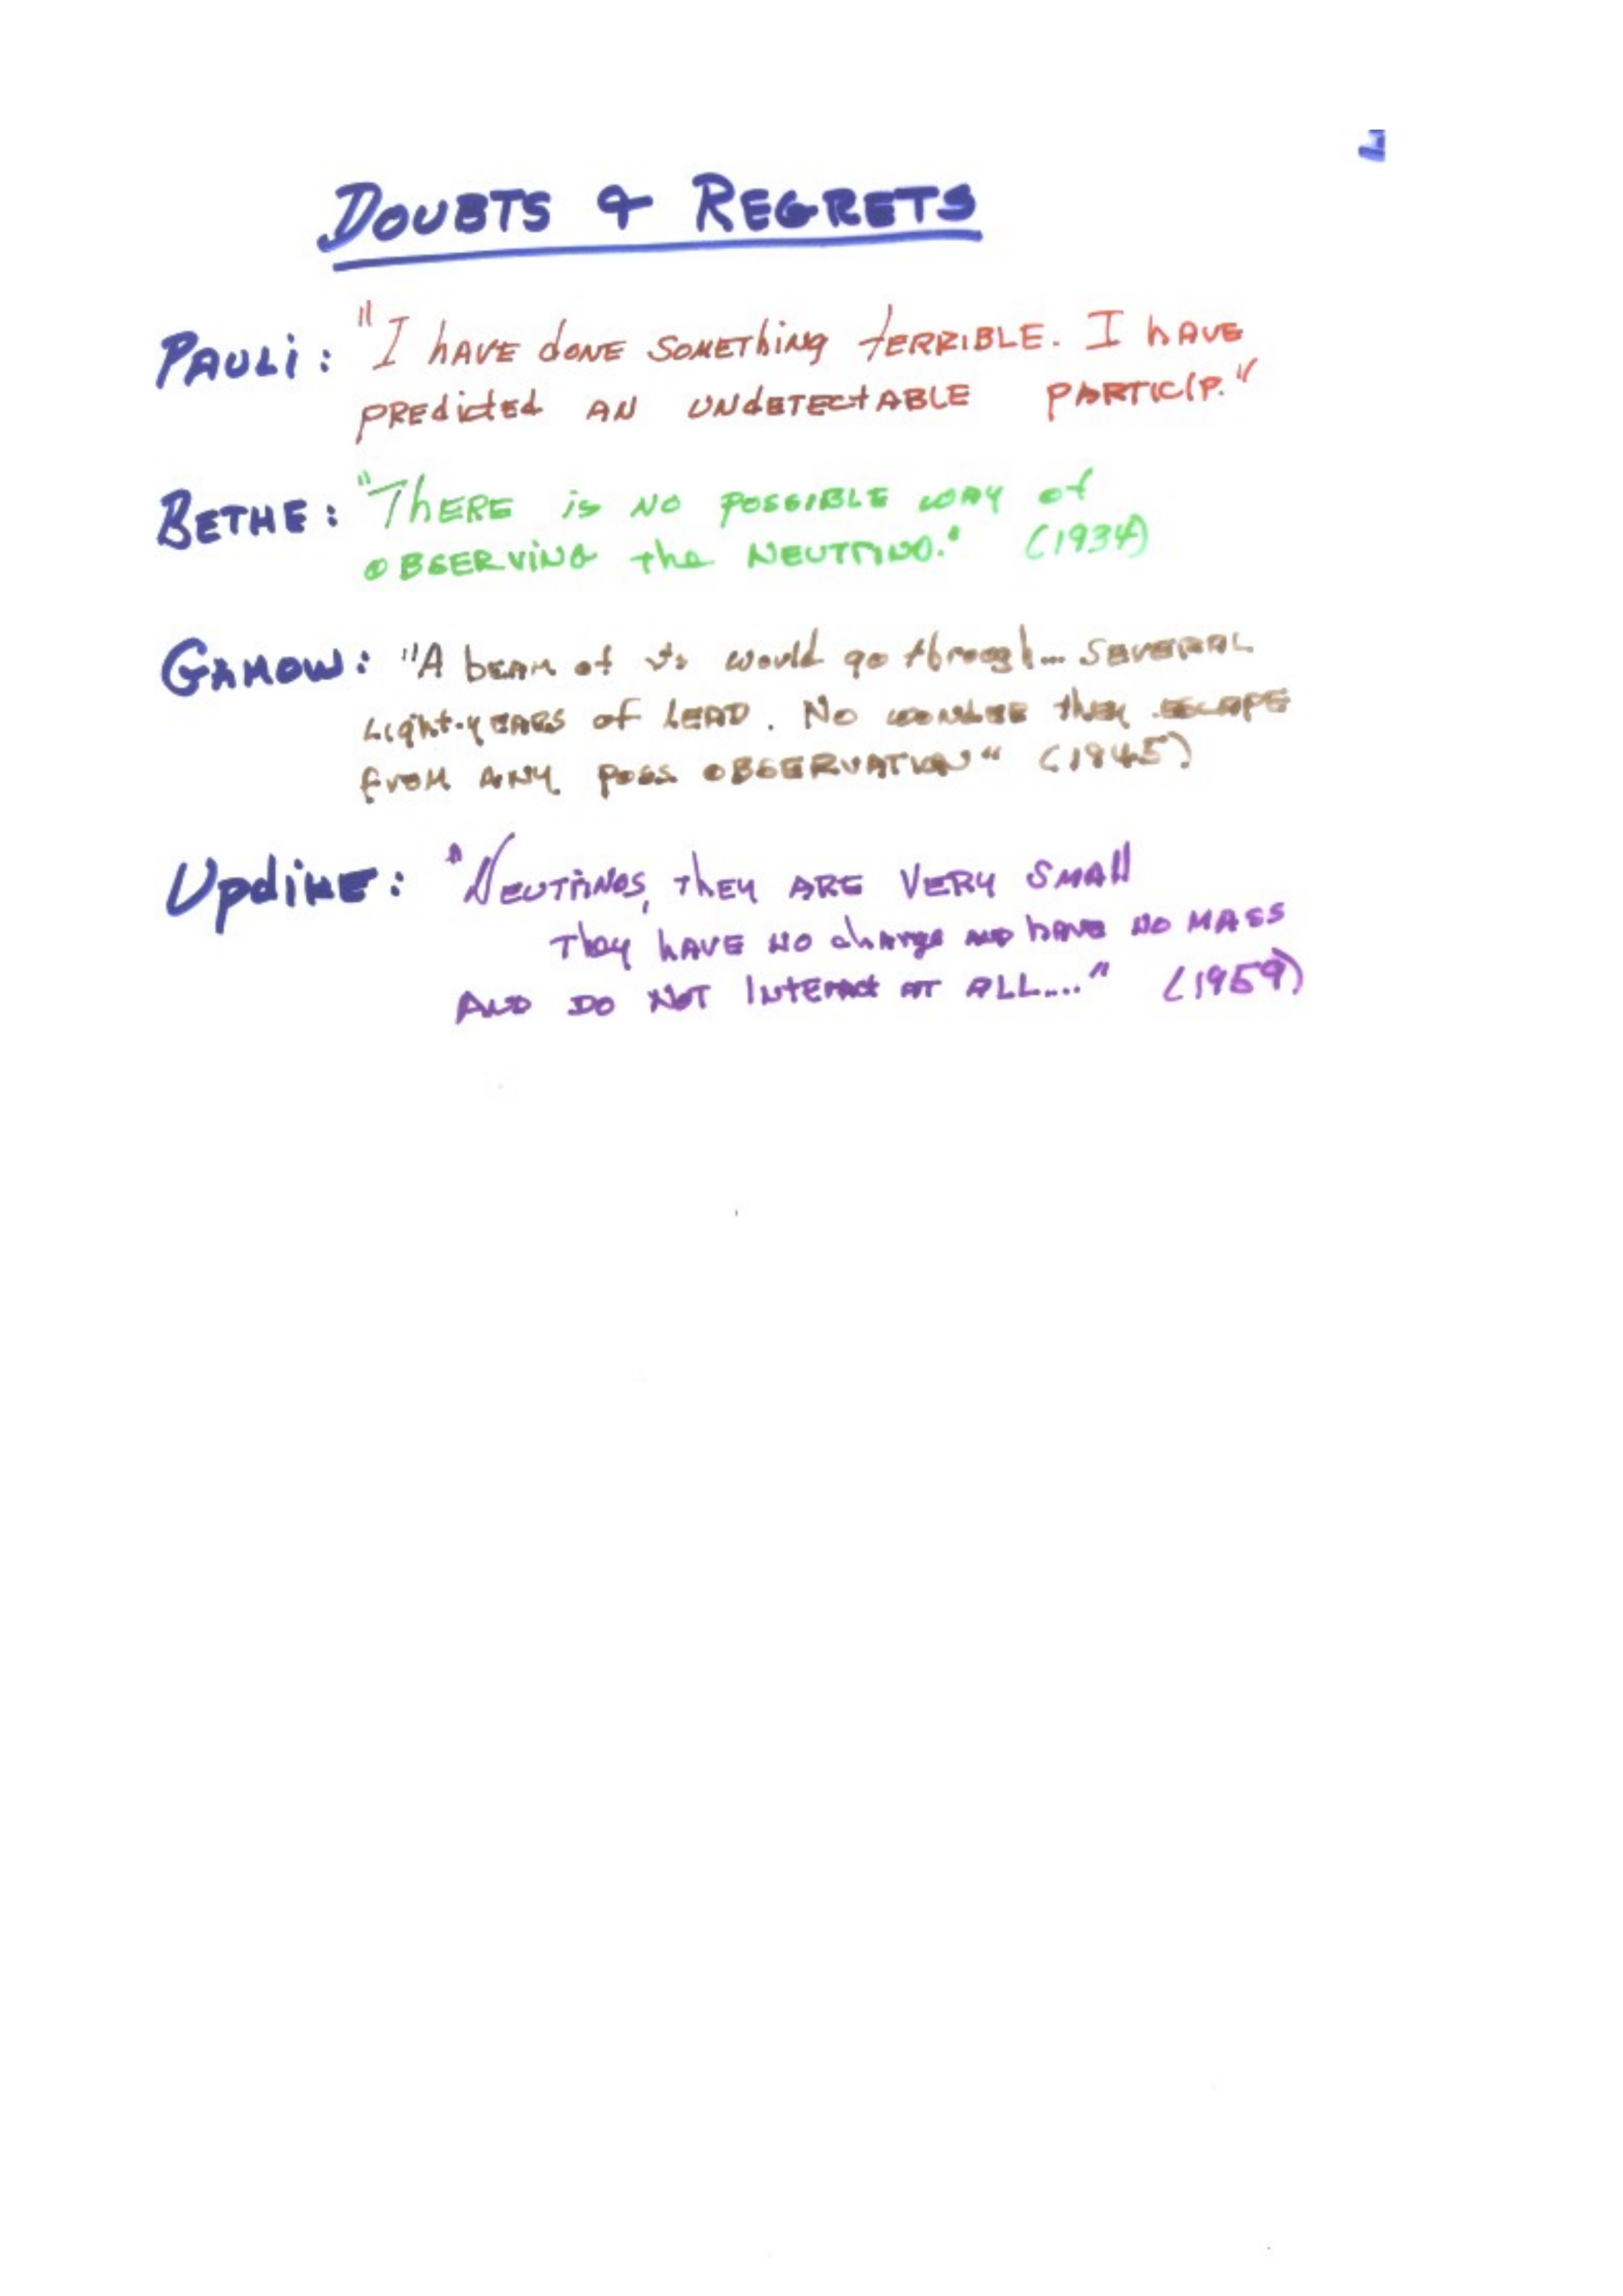 DOUBTS & REGRETS
PAULi: "I hAVE dONE SOMEThiNg tERRIBLE. I hAVE
PREdicted AN UNdETECtABLE PARTICIP."
BETHE: "ThERE is NO POSSIBLE WAY of
OBSERViNG the NEUTRINO." (1934)
GAMOW: "A bEAM of ν's would go through... SEVERAL
Light-yEARS of LEAD. No WONDER they ESCAPE
from ANY POSS OBSERVATION" (1945)
UpdiKE: "NEUTRiNOS, ThEY ARE VERY SMAll
They hAVE NO chArge AND hAVE NO MASS
AND DO NOT INTERACT AT ALL...." (1959)